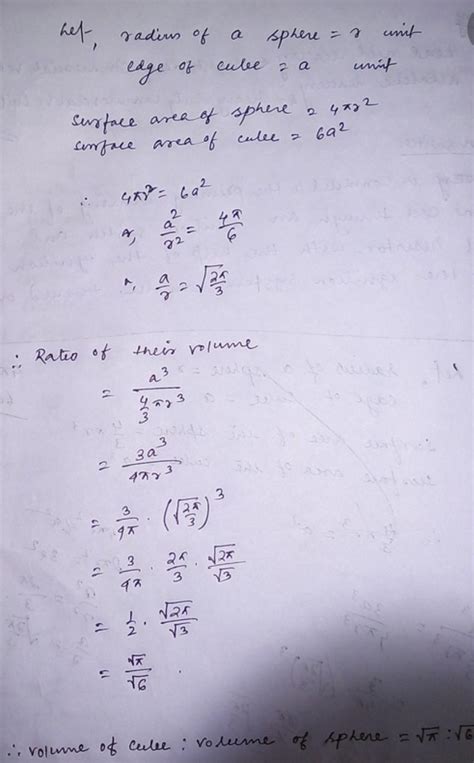 Let, radius of a sphere = r unit
edge of cube = a unit
surface area of sphere = 4πr²
surface area of cube = 6a²
∴ 4πr² = 6a²
or, a²/r² = 4π/6
or, a/r = √(2π/3)
∴ Ratio of their volume
= a³/(4/3 πr³)
= 3a³/4πr³
= 3/4π · (√(2π/3))³
= 3/4π · 2π/3 · √2π/√3
= 1/2 · √2π/√3
= √π/√6
∴ volume of cube : volume of sphere = √π : √6